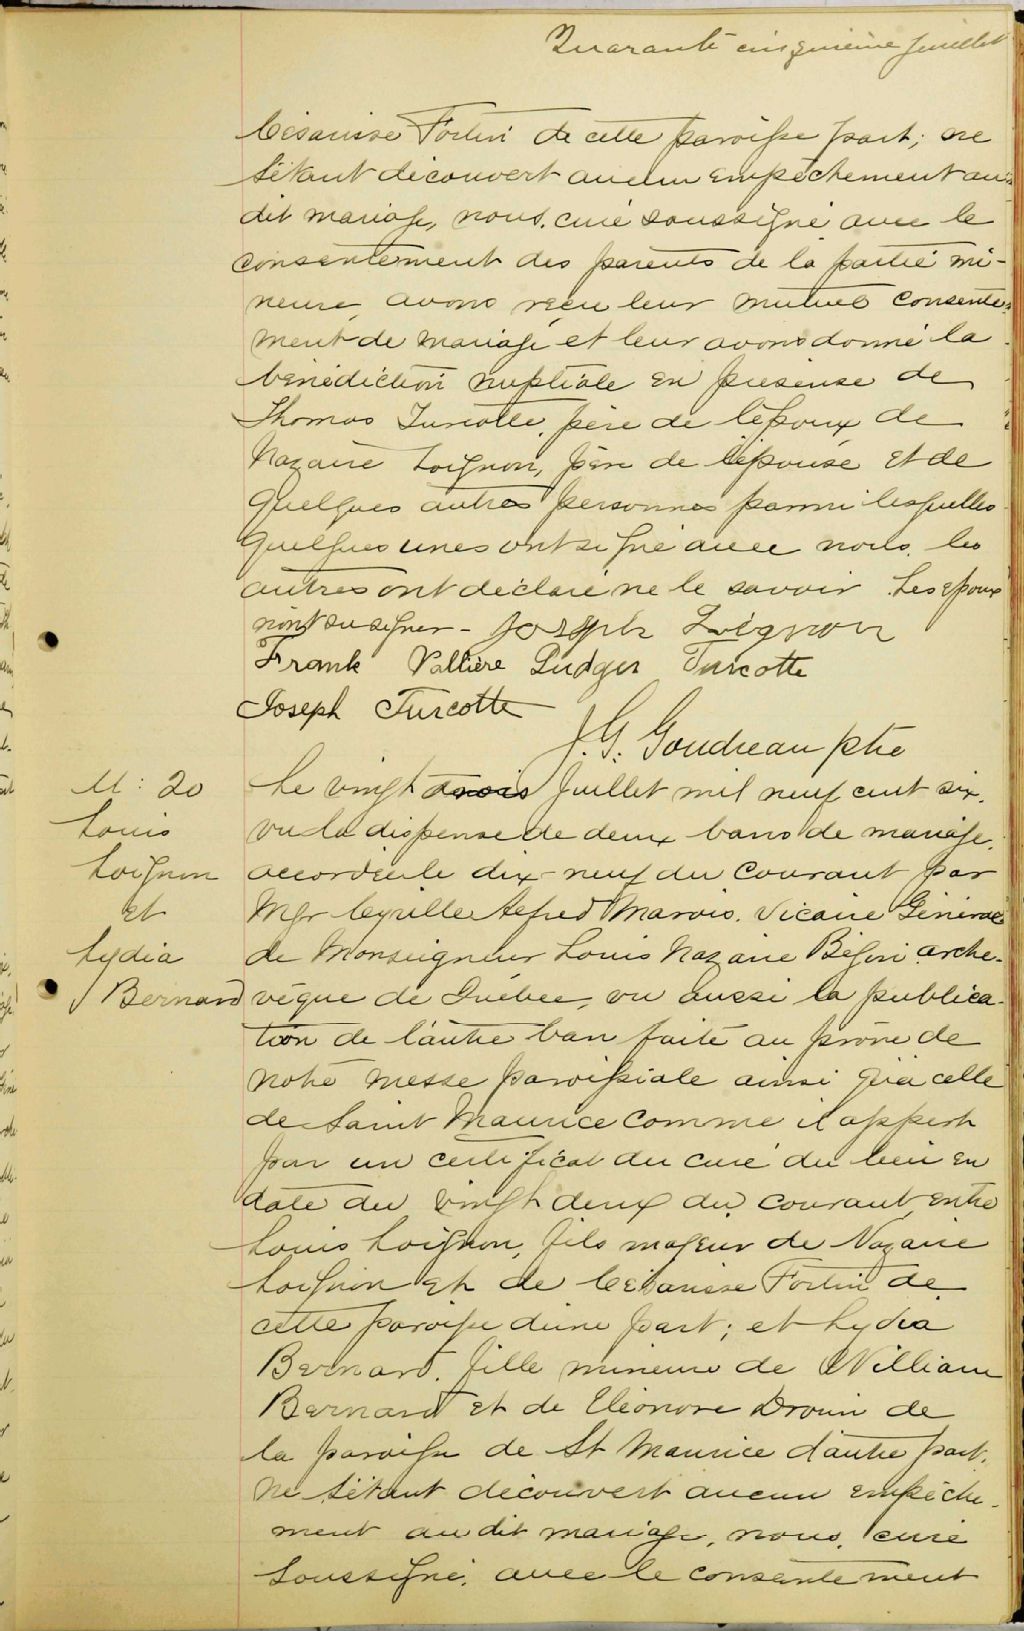 Quarante cinquième feuillet
Césarisse Fortin de cette paroisse part; ne
s'étant découvert aucun empêchement au
dit mariage, nous, curé soussigné avec le
consentement des parents de la partie mi-
neure, avons reçu leur mutuel consente
ment de mariage et leur avons donné la
bénédiction nuptiale en présense de
Thomas Turcotte, père de l'époux de
Nazaire Loignon, père de l'épouse et de
quelques autres personnes parmi lesquelles
quelques unes ont signé avec nous, les
autres ont déclaré ne le savoir. Les époux
n'ont su signer - Joseph Loignon
Frank Vallière Ludger Turcotte
Joseph Turcotte
J. G. Goudreau ptre
M : 20
Louis
Loignon
et
Lydia
Bernard
Le vingt trois Juillet mil neuf cent six,
vu la dispense de deux bans de mariage,
accordée le dix-neuf du courant par
Mgr Cyrille Alfred Marois, Vicaire Général
de Monseigneur Louis Nazaire Bégin arche-
vêque de Québec, vu aussi la publica-
tion de l'autre ban faite au prône de
notre messe paroissiale ainsi qu'à celle
de Saint Maurice comme il appert
par un certificat du curé du lieu en
date du vingt deux du courant, entre
Louis Loignon, fils majeur de Nazaire
Loignon et de Césarisse Fortin de
cette paroisse d'une part; et Lydia
Bernard, fille mineure de William
Bernard et de Eléonore Drouin de
la paroisse de St Maurice d'autre part.
Ne s'étant découvert aucun empêche-
ment au dit mariage, nous, curé
soussigné, avec le consentement